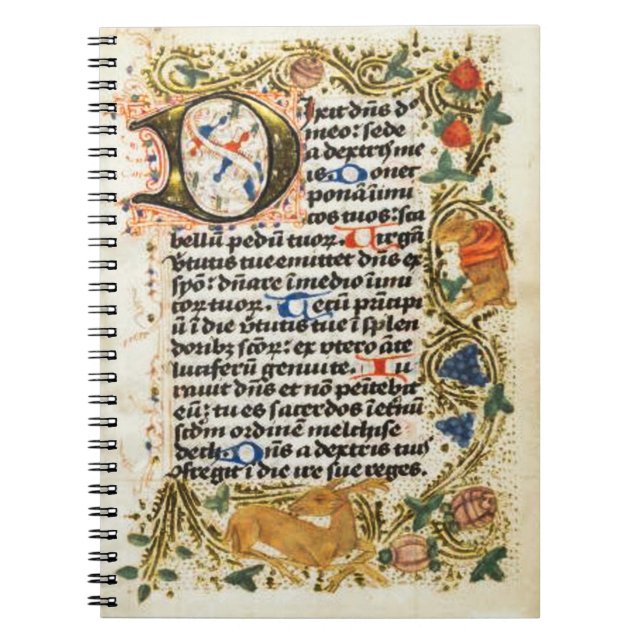 Dixit dn̄s dº
meo: sede
a dextris me
is. Donec
ponā inimi
cos tuos: sca
bellū pedū tuoꝝ. Virgā
v̄tutis tue emittet dn̄s ex
syō: dn̄are ī medio inimi
coꝝ tuoꝝ. Tecū prīcipi
ū ī die v̄tutis tue ī splen
doribꝫ scōꝝ: ex vtero āte
luciferū genui te. Iu
rauit dn̄s et nō penitebit
eū: tu es sacerdos ī eternū
scdm ordinē melchise
dech. Dn̄s a dextris tuis
cōfregit ī die ire sue reges.